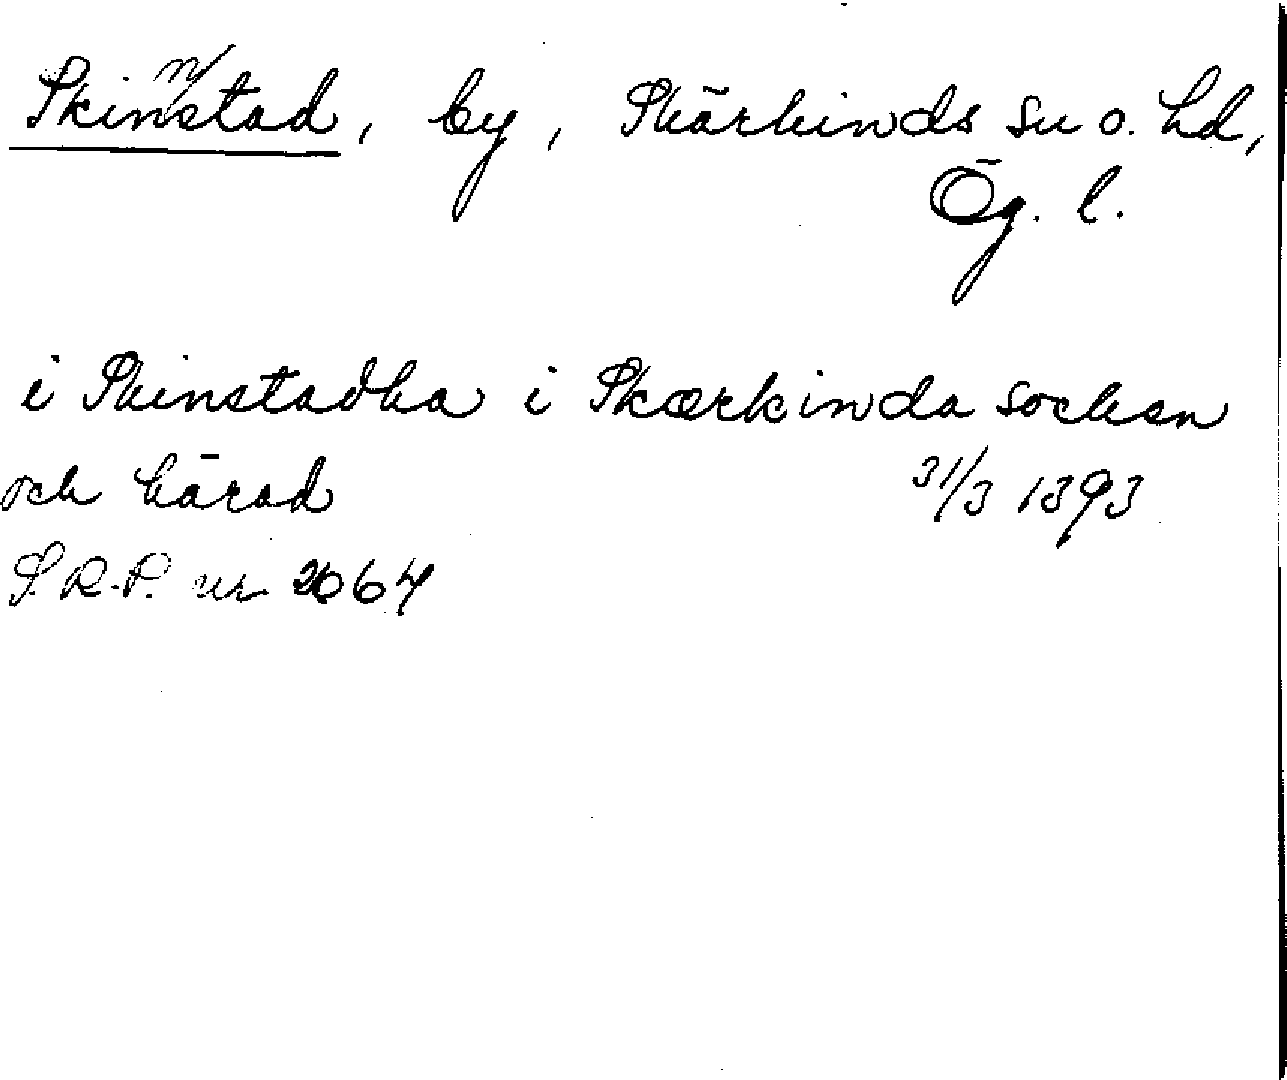 Skinnstad, by, Skärkinds sn o. hd,
Ög. l.
i Skinstadha i Skærkinda socken
och härad 31/3 1393
S.R.P. nr 2664